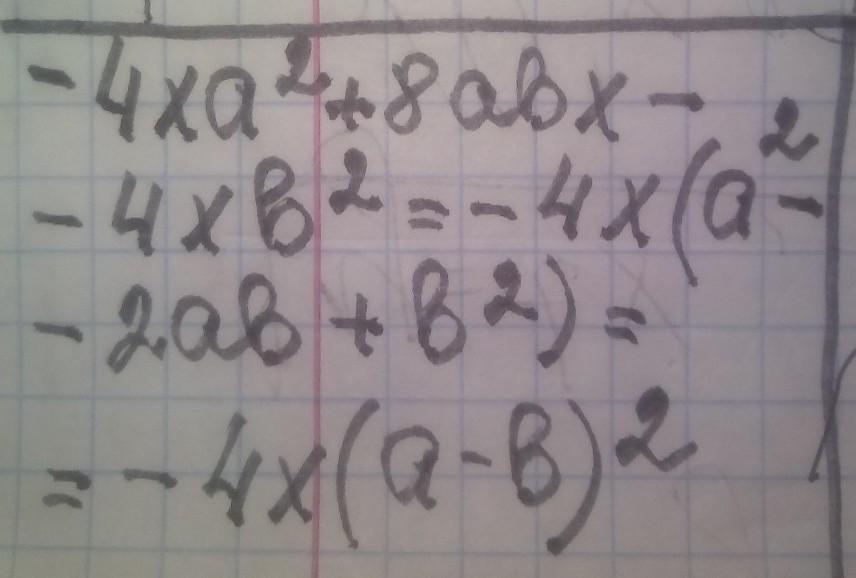 -4xa²+8abx-
-4xb²=-4x(a²-
-2ab+b²)=
=-4x(a-b)²